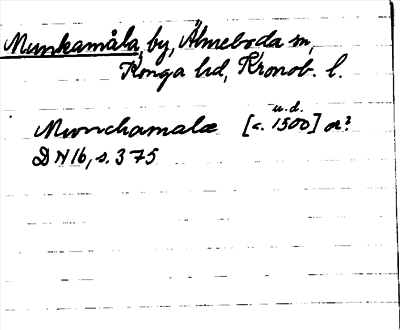 Munkamåla, by, Älmeboda sn,
Konga hd, Kronob. l.
u.d.
Munchamalæ [c. 1500] or?
DN 16, s. 375